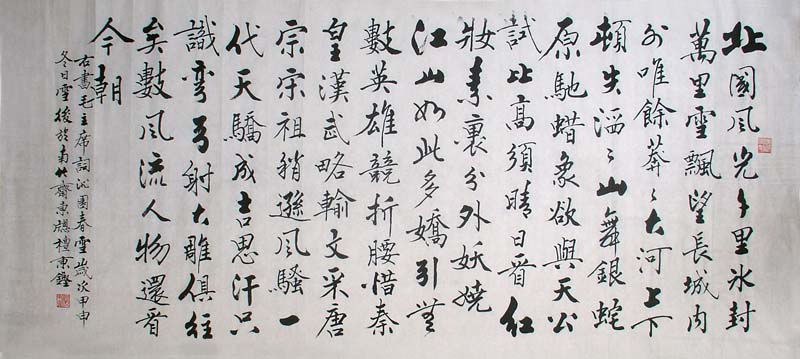 北國風光千里冰封
萬里雪飄望長城内
外唯餘莽〻大河上下
頓失滔〻山舞銀蛇
原馳蜡象欲與天公
試比高須晴日看紅
妝素裹分外妖嬈
江山如此多嬌引無
數英雄競折腰惜秦
皇漢武略輸文采唐
宗宋祖稍遜風騷一
代天驕成吉思汗只
識彎弓射大雕俱往
矣數風流人物還看
今朝
右書毛主席詞沁園春雪歲次甲申
冬日雪後於南竹齋東牖